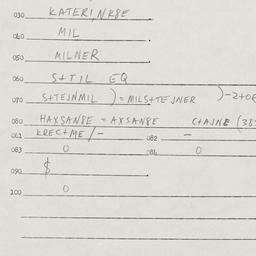 030 KATERINKBE
040 MIL
050 MILNER
060 S+TIL EQ
070 S+TEJNMIL ) = MILS+TEJNER )-2+0
080 HAXSANBE = AXSANBE C+AJNE (38
081 KREC+ME/- 082 -
083 0 084 0
090 $
100 0